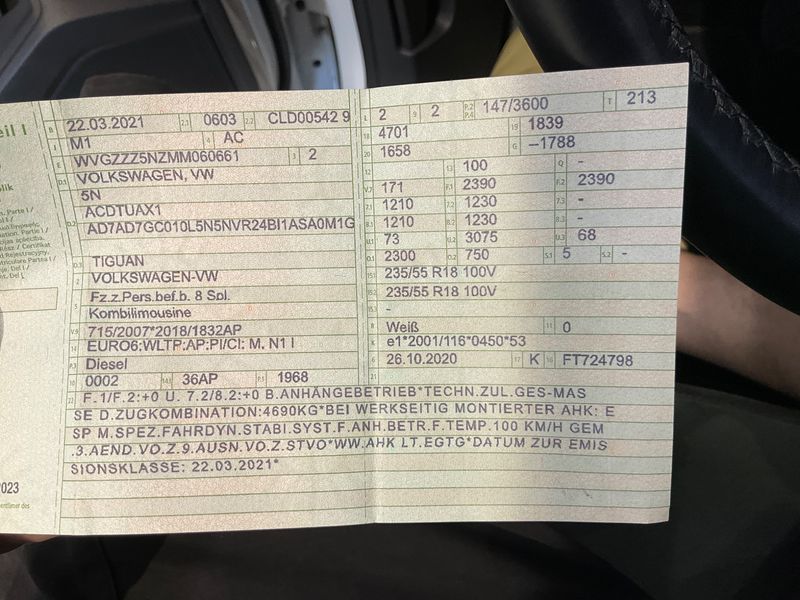 eil I
B 22.03.2021 2.1 0603 2.2 CLD00542 9
J M1 4 AC
E WVGZZZ5NZMM060661 3 2
D.1 VOLKSWAGEN, VW
5N
ACDTUAX1
D.2 AD7AD7GC010L5N5NVR24BI1ASA0M1G
D.3 TIGUAN
2 VOLKSWAGEN-VW
Fz.z.Pers.bef.b. 8 Spl.
5 Kombilimousine
V.9 715/2007*2018/1832AP
14 EURO6:WLTP:AP:PI/CI: M, N1 I
P.3 Diesel
10 0002 14.1 36AP P.1 1968
L 2 9 2 P.2 P.4 147/3600 T 213
18 4701 19 1839
20 1658 G –1788
12 13 100 Q -
V.7 171 F.1 2390 F.2 2390
7.1 1210 7.2 1230 7.3 -
8.1 1210 8.2 1230 8.3 -
U.1 73 U.2 3075 U.3 68
O.1 2300 O.2 750 S.1 5 S.2 -
15.1 235/55 R18 100V
15.2 235/55 R18 100V
15.3 -
R Weiß 11 0
K e1*2001/116*0450*53
6 26.10.2020 17 K 16 FT724798
21
22 F.1/F.2:+0 U. 7.2/8.2:+0 B.ANHÄNGEBETRIEB*TECHN.ZUL.GES-MAS
SE D.ZUGKOMBINATION:4690KG*BEI WERKSEITIG MONTIERTER AHK: E
SP M.SPEZ.FAHRDYN.STABI.SYST.F.ANH.BETR.F.TEMP.100 KM/H GEM
.3.AEND.VO.Z.9.AUSN.VO.Z.STVO*WW.AHK LT.EGTG*DATUM ZUR EMIS
SIONSKLASSE: 22.03.2021*
2023